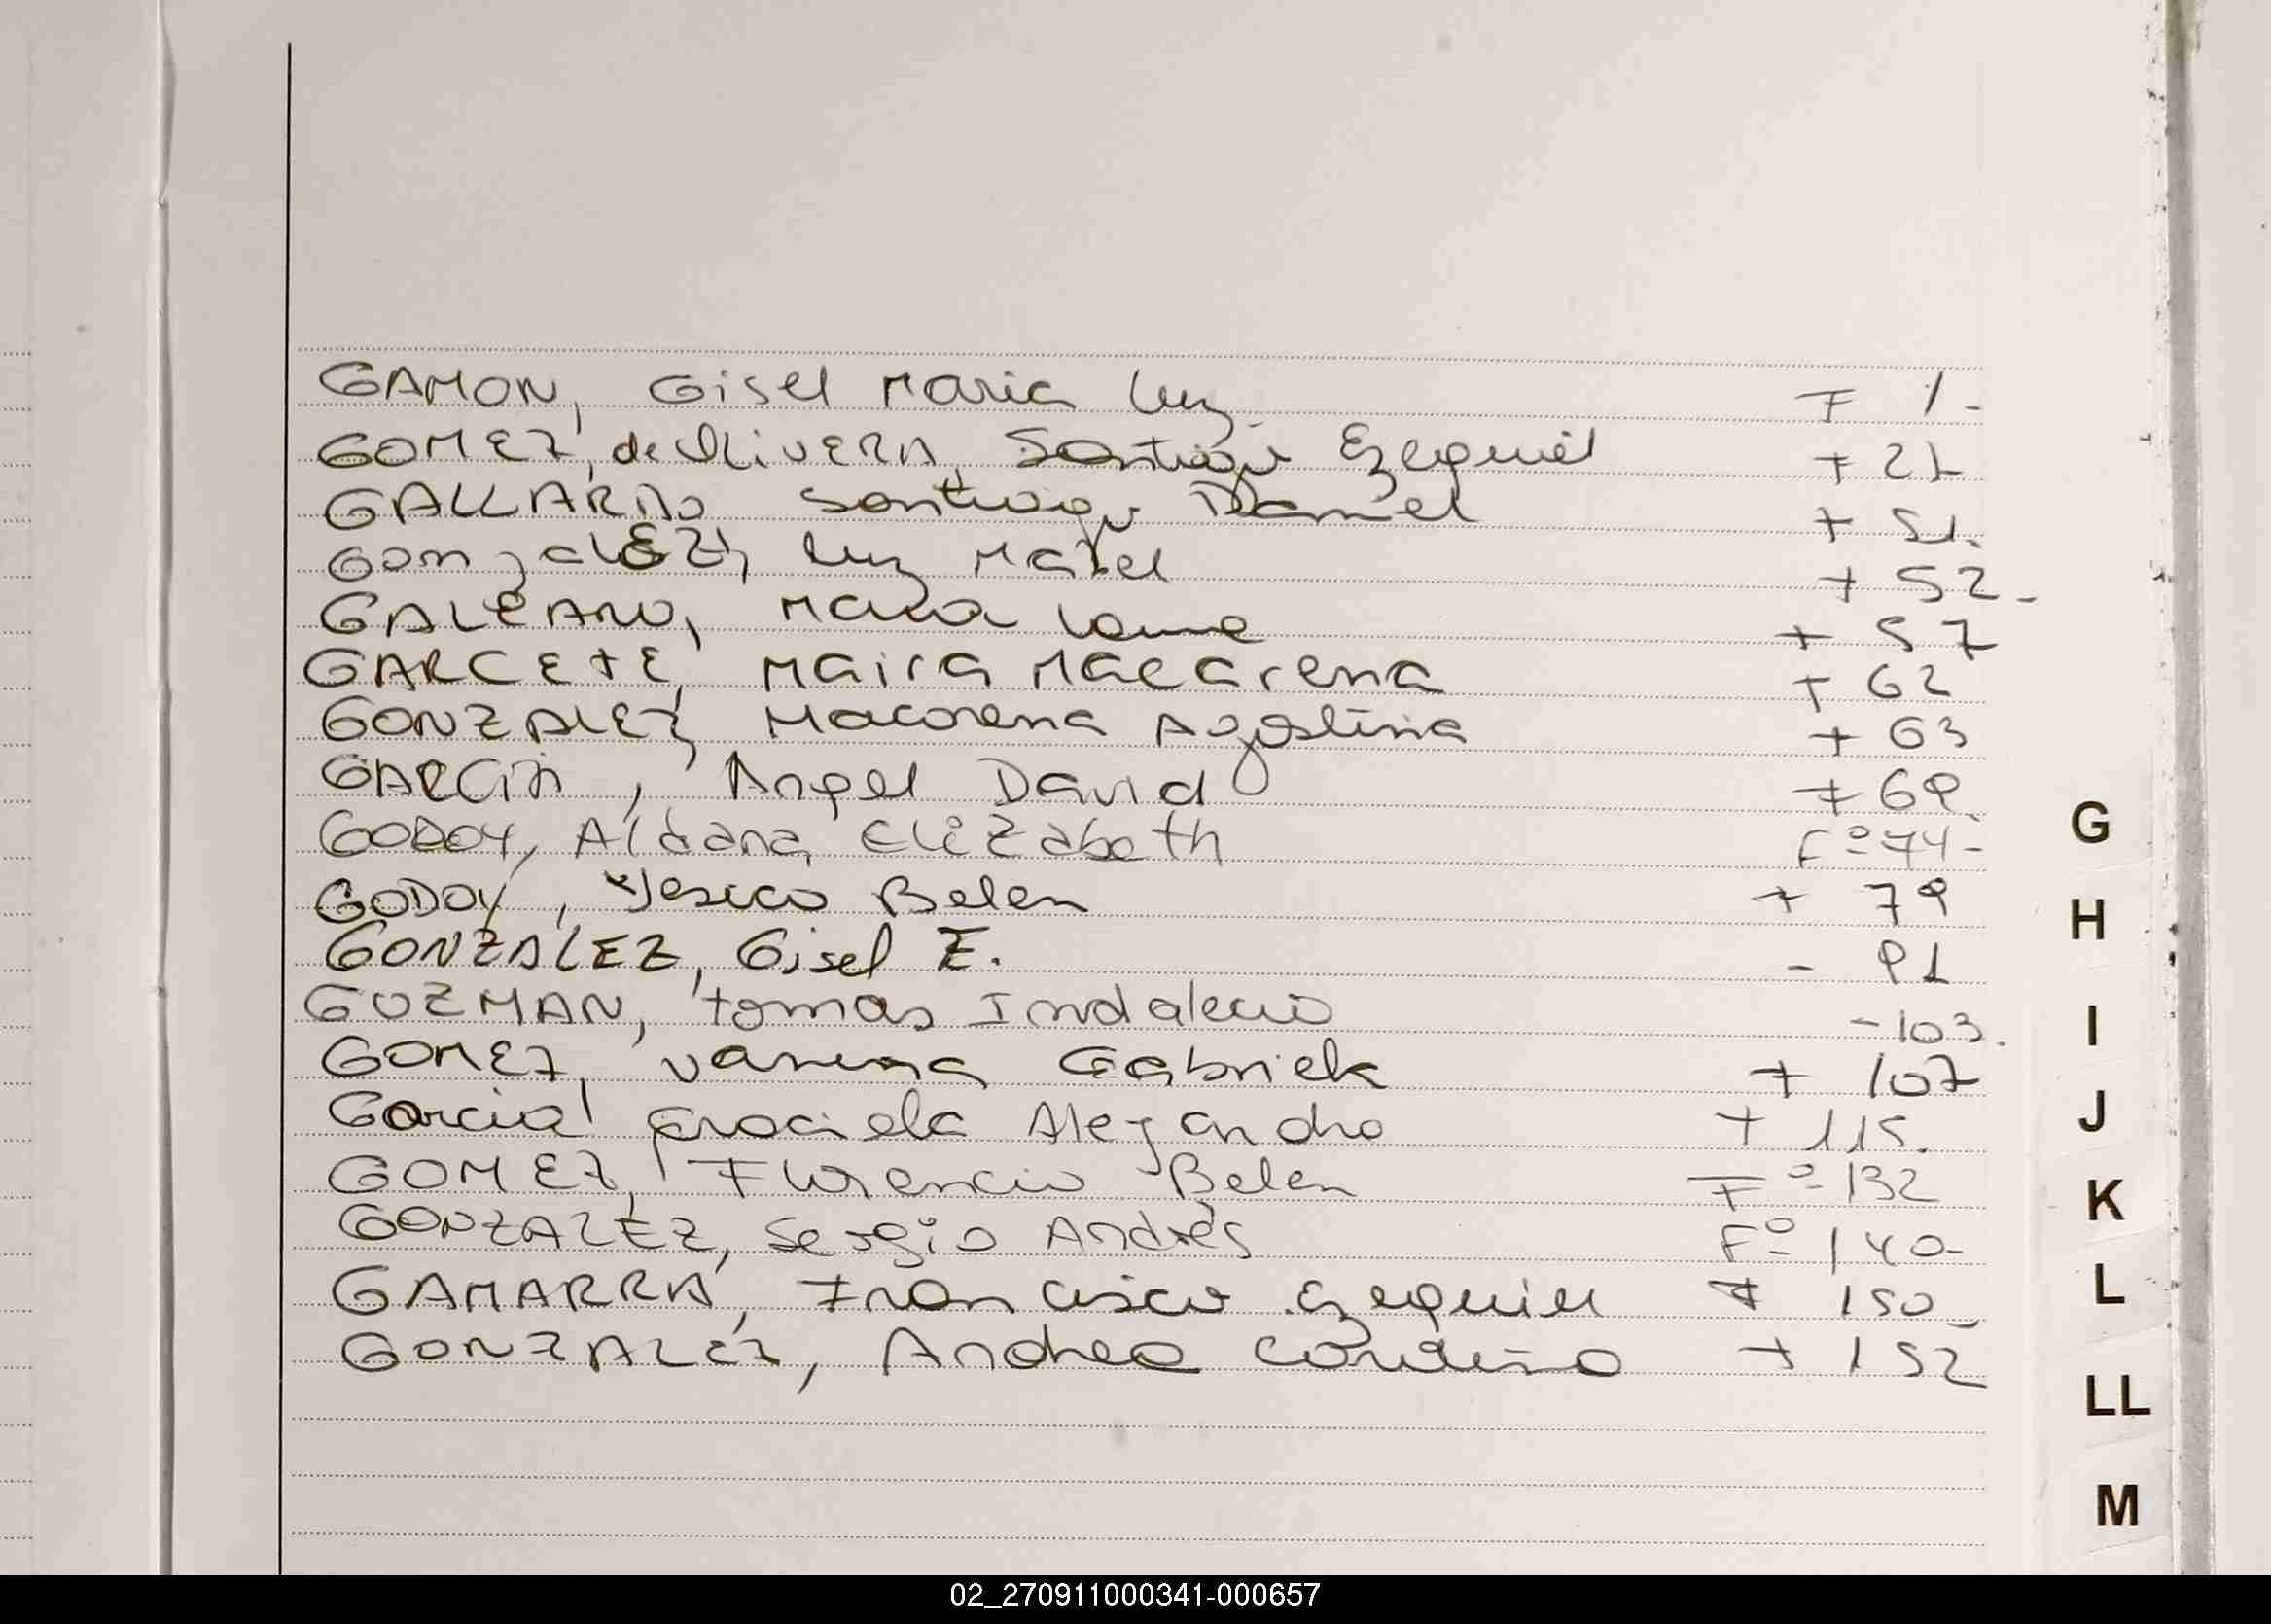 GAMON, Gisel Maria Luz F 1-
GOMEZ, de OliVERA, Santiago Ezequiel F 21
GALLARDO Santiago Daniel F 51.
GonzalEZ, Luz Mabel F 52-
GALEANO, Maria F 57
GARCETE, Maira Macarena F 62
GONZALEZ, Macarena Agostina F 63
GARCIA, Angel David F 69
GODOY, Aldana Elizabeth Fº 74-
GODOY, Yesica Belen F 79
GONZALEZ, Gisel E. - 91
GUZMAN, tomas Indalecio - 103.
GOMEZ, vanena Gabriela F 107
Garcia, Graciela Alejandra F 115.
GOMEZ, Florencia Belen Fº 132
GONZALEZ, Sergio Andrés Fº 140-
GAMARRA, Francisco Ezequiel F 150
GONZALEZ, Andrea F 152
G
H
I
J
K
L
LL
M
02_270911000341-000657